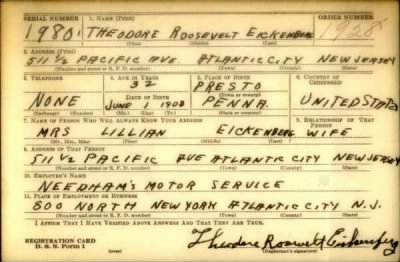 SERIAL NUMBER 1. NAME (Print) ORDER NUMBER
1980 THEODORE ROOSEVELT EICKENBERG 1928
(First) (Middle) (Last)
2. ADDRESS (Print)
511 1/2 PACIFIC AVE ATLANTIC CITY NEW JERSEY
(Number and street or R. F. D. number) (Town) (County) (State)
3. TELEPHONE 4. AGE IN YEARS 5. PLACE OF BIRTH 6. COUNTRY OF CITIZENSHIP
32 PRESTO
DATE OF BIRTH (Town or county)
NONE JUNE 1 1908 PENNA. UNITED STATES
(Exchange) (Number) (Mo.) (Day) (Yr.) (State or country)
7. NAME OF PERSON WHO WILL ALWAYS KNOW YOUR ADDRESS 8. RELATIONSHIP OF THAT PERSON
MRS LILLIAN EICKENBERG WIFE
(Mr., Mrs., Miss) (First) (Middle) (Last)
9. ADDRESS OF THAT PERSON
511 1/2 PACIFIC AVE ATLANTIC CITY NEW JERSEY
(Number and street or R. F. D. number) (Town) (County) (State)
10. EMPLOYER'S NAME
NEEDHAM'S MOTOR SERVICE
11. PLACE OF EMPLOYMENT OR BUSINESS
800 NORTH NEW YORK ATLANTIC CITY N.J.
(Number and street or R. F. D. number) (Town) (County) (State)
I AFFIRM THAT I HAVE VERIFIED ABOVE ANSWERS AND THAT THEY ARE TRUE.
REGISTRATION CARD
D. S. S. Form 1 (over) Theodore Roosevelt Eickenberg
(Registrant's signature)